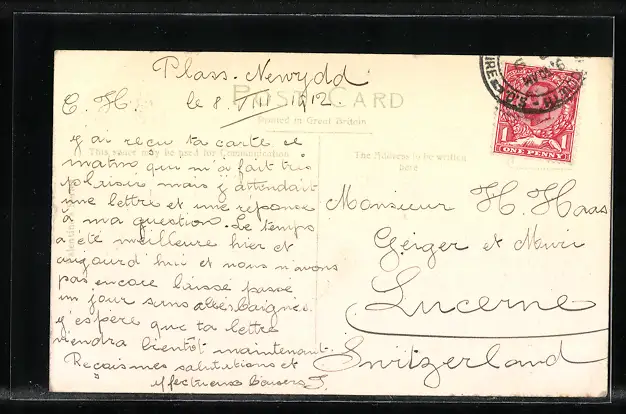 Plass-Newydd
C. H. le 8. VIII 1912.
POST CARD
Printed in Great Britain
This space may be used for Communication
The Address to be written
here
j'ai reçu ta carte ce
matin qui m'a fait très
plaisir mais j'attendait
une lettre et une réponse
à ma question. Le temps
a été meilleure hier et
aujourd'hui et nous n'avons
pas encore laissé passé
un jour sans
j'espère que ta lettre
viendra bientôt maintenant.
Reçois mes salutations et
affectueux baisers J.
Monsieur H. Haas
Geiger et Muri
Lucerne
Switzerland
1 1
ONE PENNY